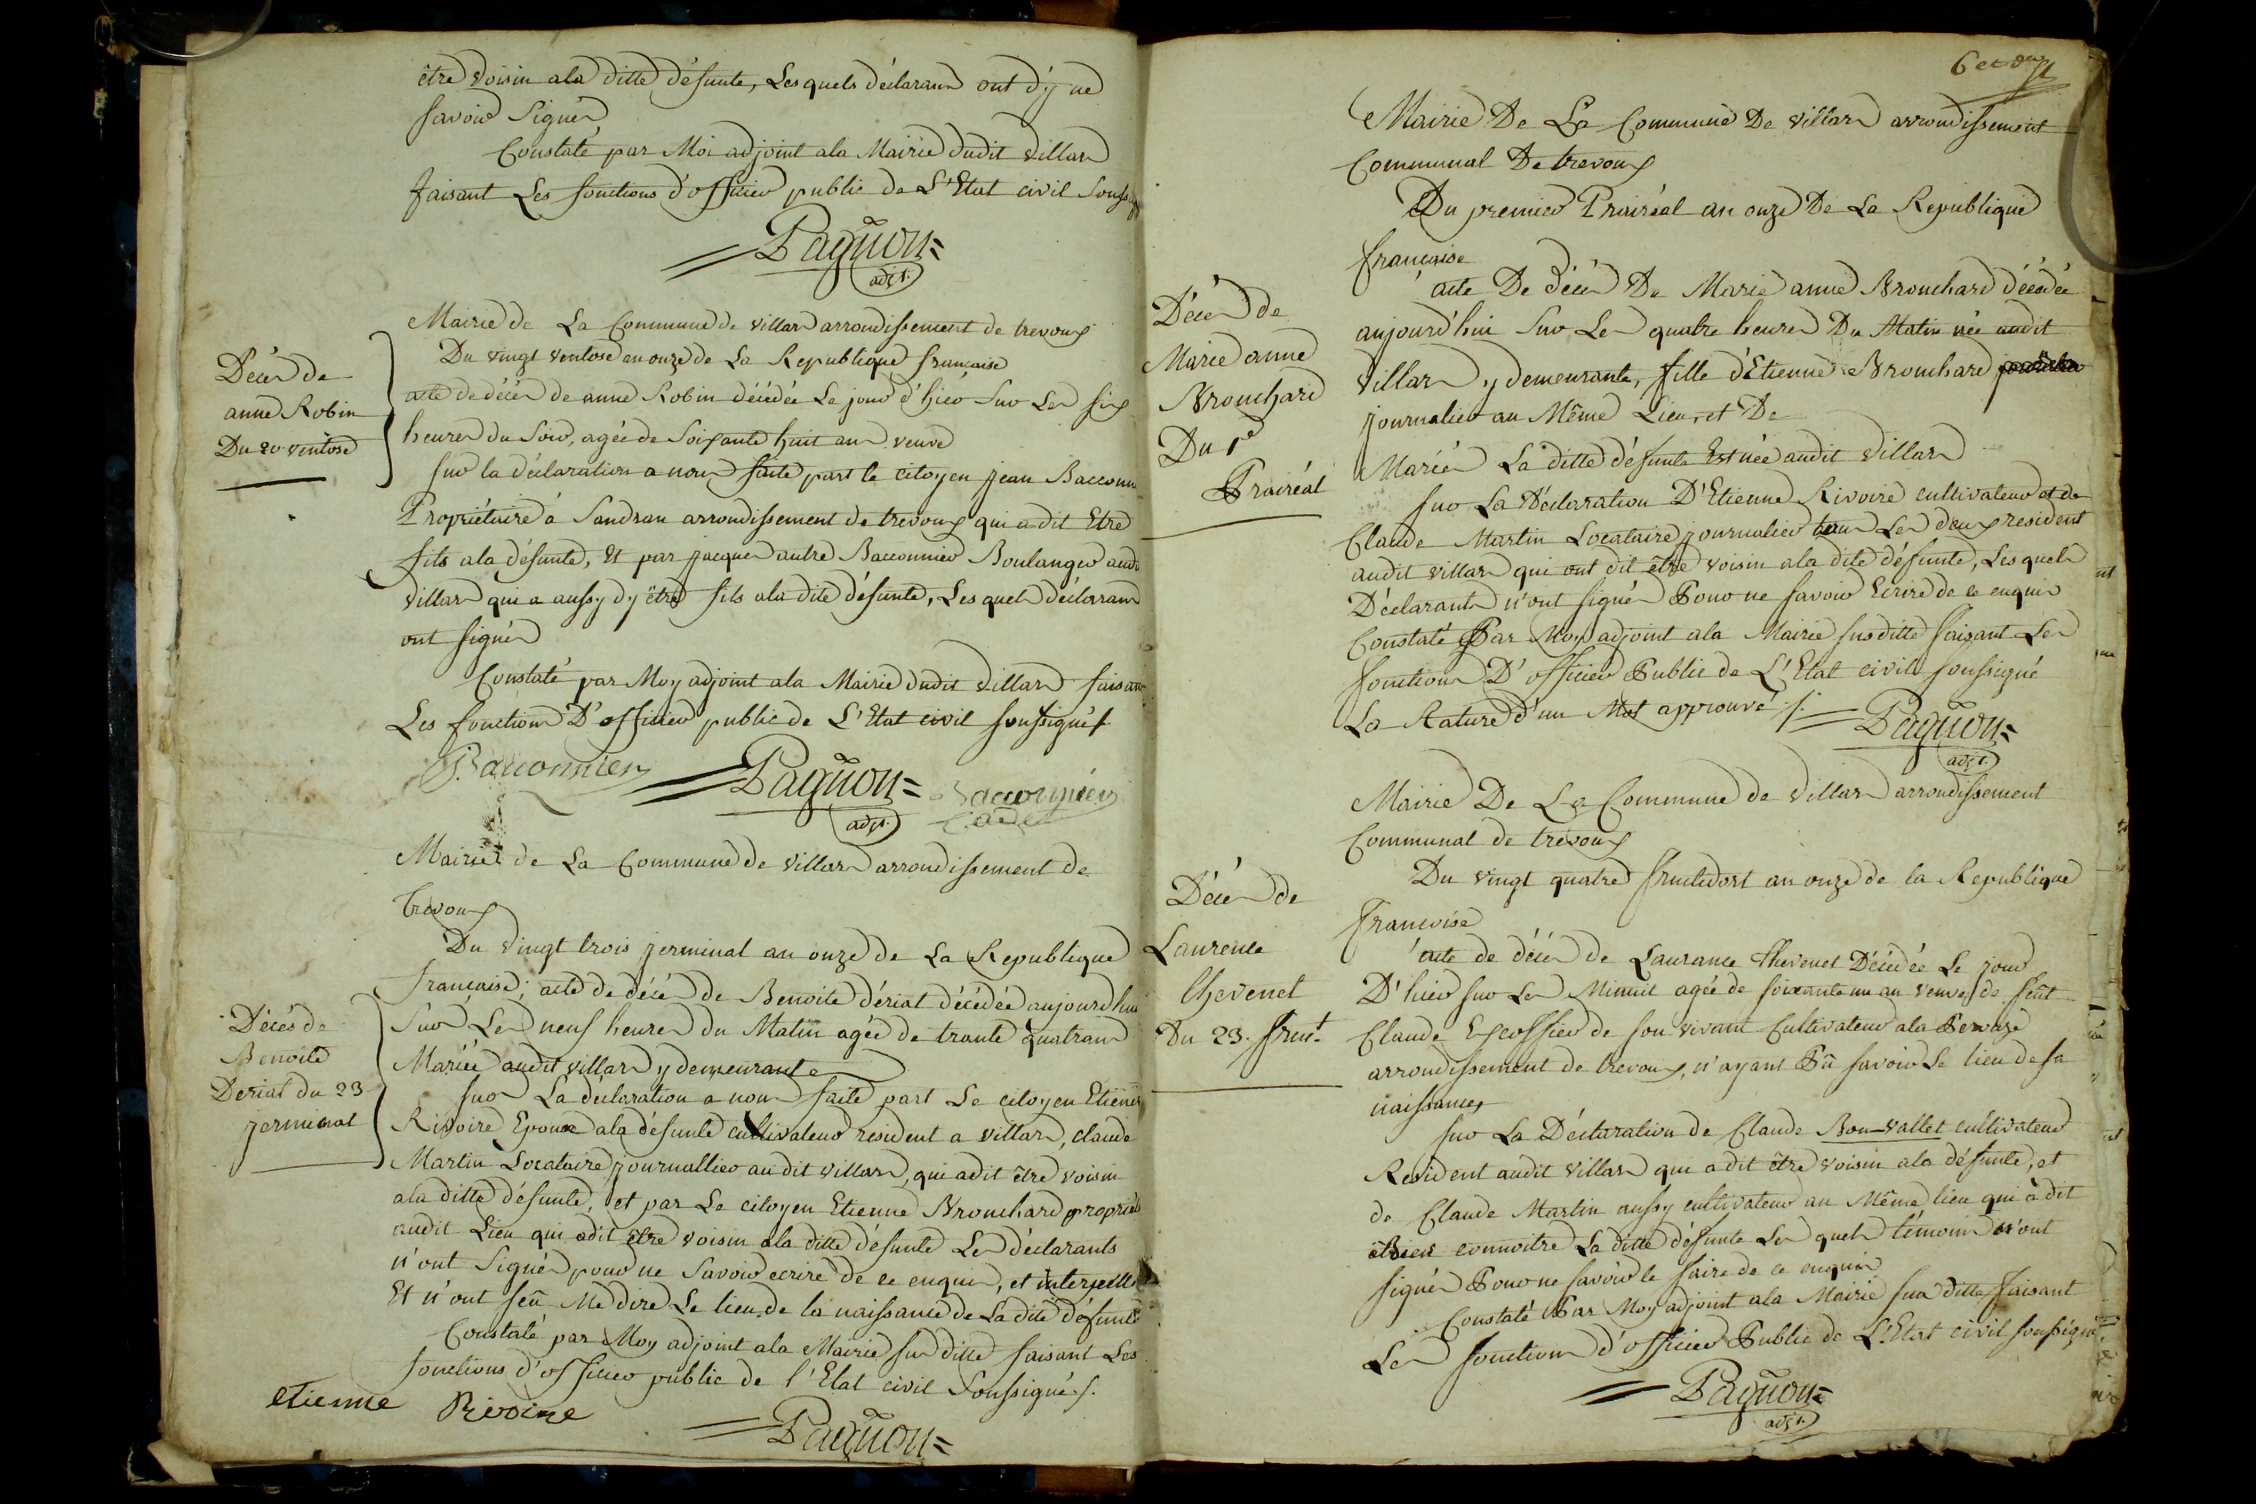 être voisin a la ditte défunte, Lesquels déclarans ont d'y ne
savoir Signer
Constaté par Moi adjoint a la Mairie dudit villars
faisant Les fonctions d'officier public de L'Etat civil Souss
Pagnon
adjt.
Mairie de La Commune de villars arrondissement de trevoux
Du vingt ventose an onze de La Republique francaise
Décès de
anne Robin
Du 20 ventose
acte de décès de anne Robin décédée Le jour d'hier Sur Les six
heures du Soir, agée de Soixante huit ans veuve
sur la déclaration a nous faite part le citoyen jean Baconn
Propriétaire à Sandran arrondissement de trevoux qui a dit Etre
fils a la défunte, Et par jacques autre Baconnier Boulanger aud
villars qui a aussy dy être fils a la dite défunte, Lesquels déclarans
ont signés
Constaté par Moy adjoint a la Mairie dudit villars faisan
Les fonctions D'officier public de L'Etat civil soussigné
Baconnier
Pagnon
adjt.
Baconnier
Cadet
Mairie de La Commune de villars arrondissement de
trevoux
Du vingt trois jerminal an onze de La Republique
francaise, acte de décès de Benoite dériat décédée aujourdhui
Décès de
Benoite
Deriat du 23
jerminal
Sur Les neuf heures du Matin agée de trante quatrans
Mariée audit villars y demeurante
sur La déclaration a nous faite part Le citoyen Etienne
Rivoire Epoux a la défunte cultivateur resident a villars, claude
Martin Locataire journallier audit villars, qui a dit être voisin
a la ditte défunte, et par Le citoyen Etienne Brouchard propriét
audit Lieu qui adit être voisin a la ditte défunte Les déclarants
n'ont Signés pour ne Savoir ecrire de ce enquis, et interpellé
Et n'ont seû Me dire Le lieu de la naissance de La dite défunte
Constaté par Moy adjoint a la Mairie sus ditte faisant Les
fonctions d'officier public de l'Etat civil Soussigné
etienne Rivoire
Pagnon
6 et
Mairie De La Commune De villars arrondissement
Communal De trevoux
Du premier Prairéal an onze De La Republique
francaise
Décès de
Marie anne
Brouchard
Du 1er
Prairéal
acte De décès De Marie anne Brouchard décédée
aujourd'hui Sur Les quatre heures Du Matin née audit
villars y demeurante, fille d'Etienne Brouchard
journalier au Même Lieu, et De
Mariés La ditte défunte Est née audit villars
sur La Déclaration D'Etienne Rivoire cultivateur et de
Claude Martin Locataire journalier tous Les deux resident
audit villars qui ont dit être voisin a la dite défunte, Lesquels
Déclarants n'ont signés Pour ne savoir Ecrire de ce enquis
Constaté Par Moy adjoint a la Mairie susditte faisant Les
fonctions D'officier Public de L'Etat civil soussigné
La Rature d'un Mot approuvé
Pagnon
adjt.
Mairie De La Commune de villars arrondissement
Communal de trévoux
Du vingt quatre fructidort an onze de la Republique
francoise
Décès de
Laurence
Chevenet
Du 23. fruct.
acte de décès de Laurance thevenet Décédée Le jour
D'hier sur Les Minuit agée de soixante un an veuve de feût
Claude Escoffier de son vivant Cultivateur a la Perouse
arrondissement de trevoux, n'ayant Pû savoir Le lieu de sa
naissance
sur La Déclaration de Claude Bon-vallet cultivateur
Resident audit villars qui a dit être voisin a la défunte, et
de Claude Martin aussy cultivateur au Même lieu qui à dit
bien connoitre La ditte défunte Lesquels témoins n'ont
signés Pour ne savoir le faire de ce enquis
Constaté Par Moy adjoint a la Mairie sus ditte faisant
Les fonctions d'officier Public de L'Etat civil soussigné
Pagnon
adjt.